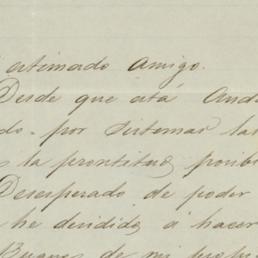 estimado Amigo.
Desde que está And
do por sistemas la
la prontitud posib
Desesperado de poder
he decidido á hacer
Buques de mi prop